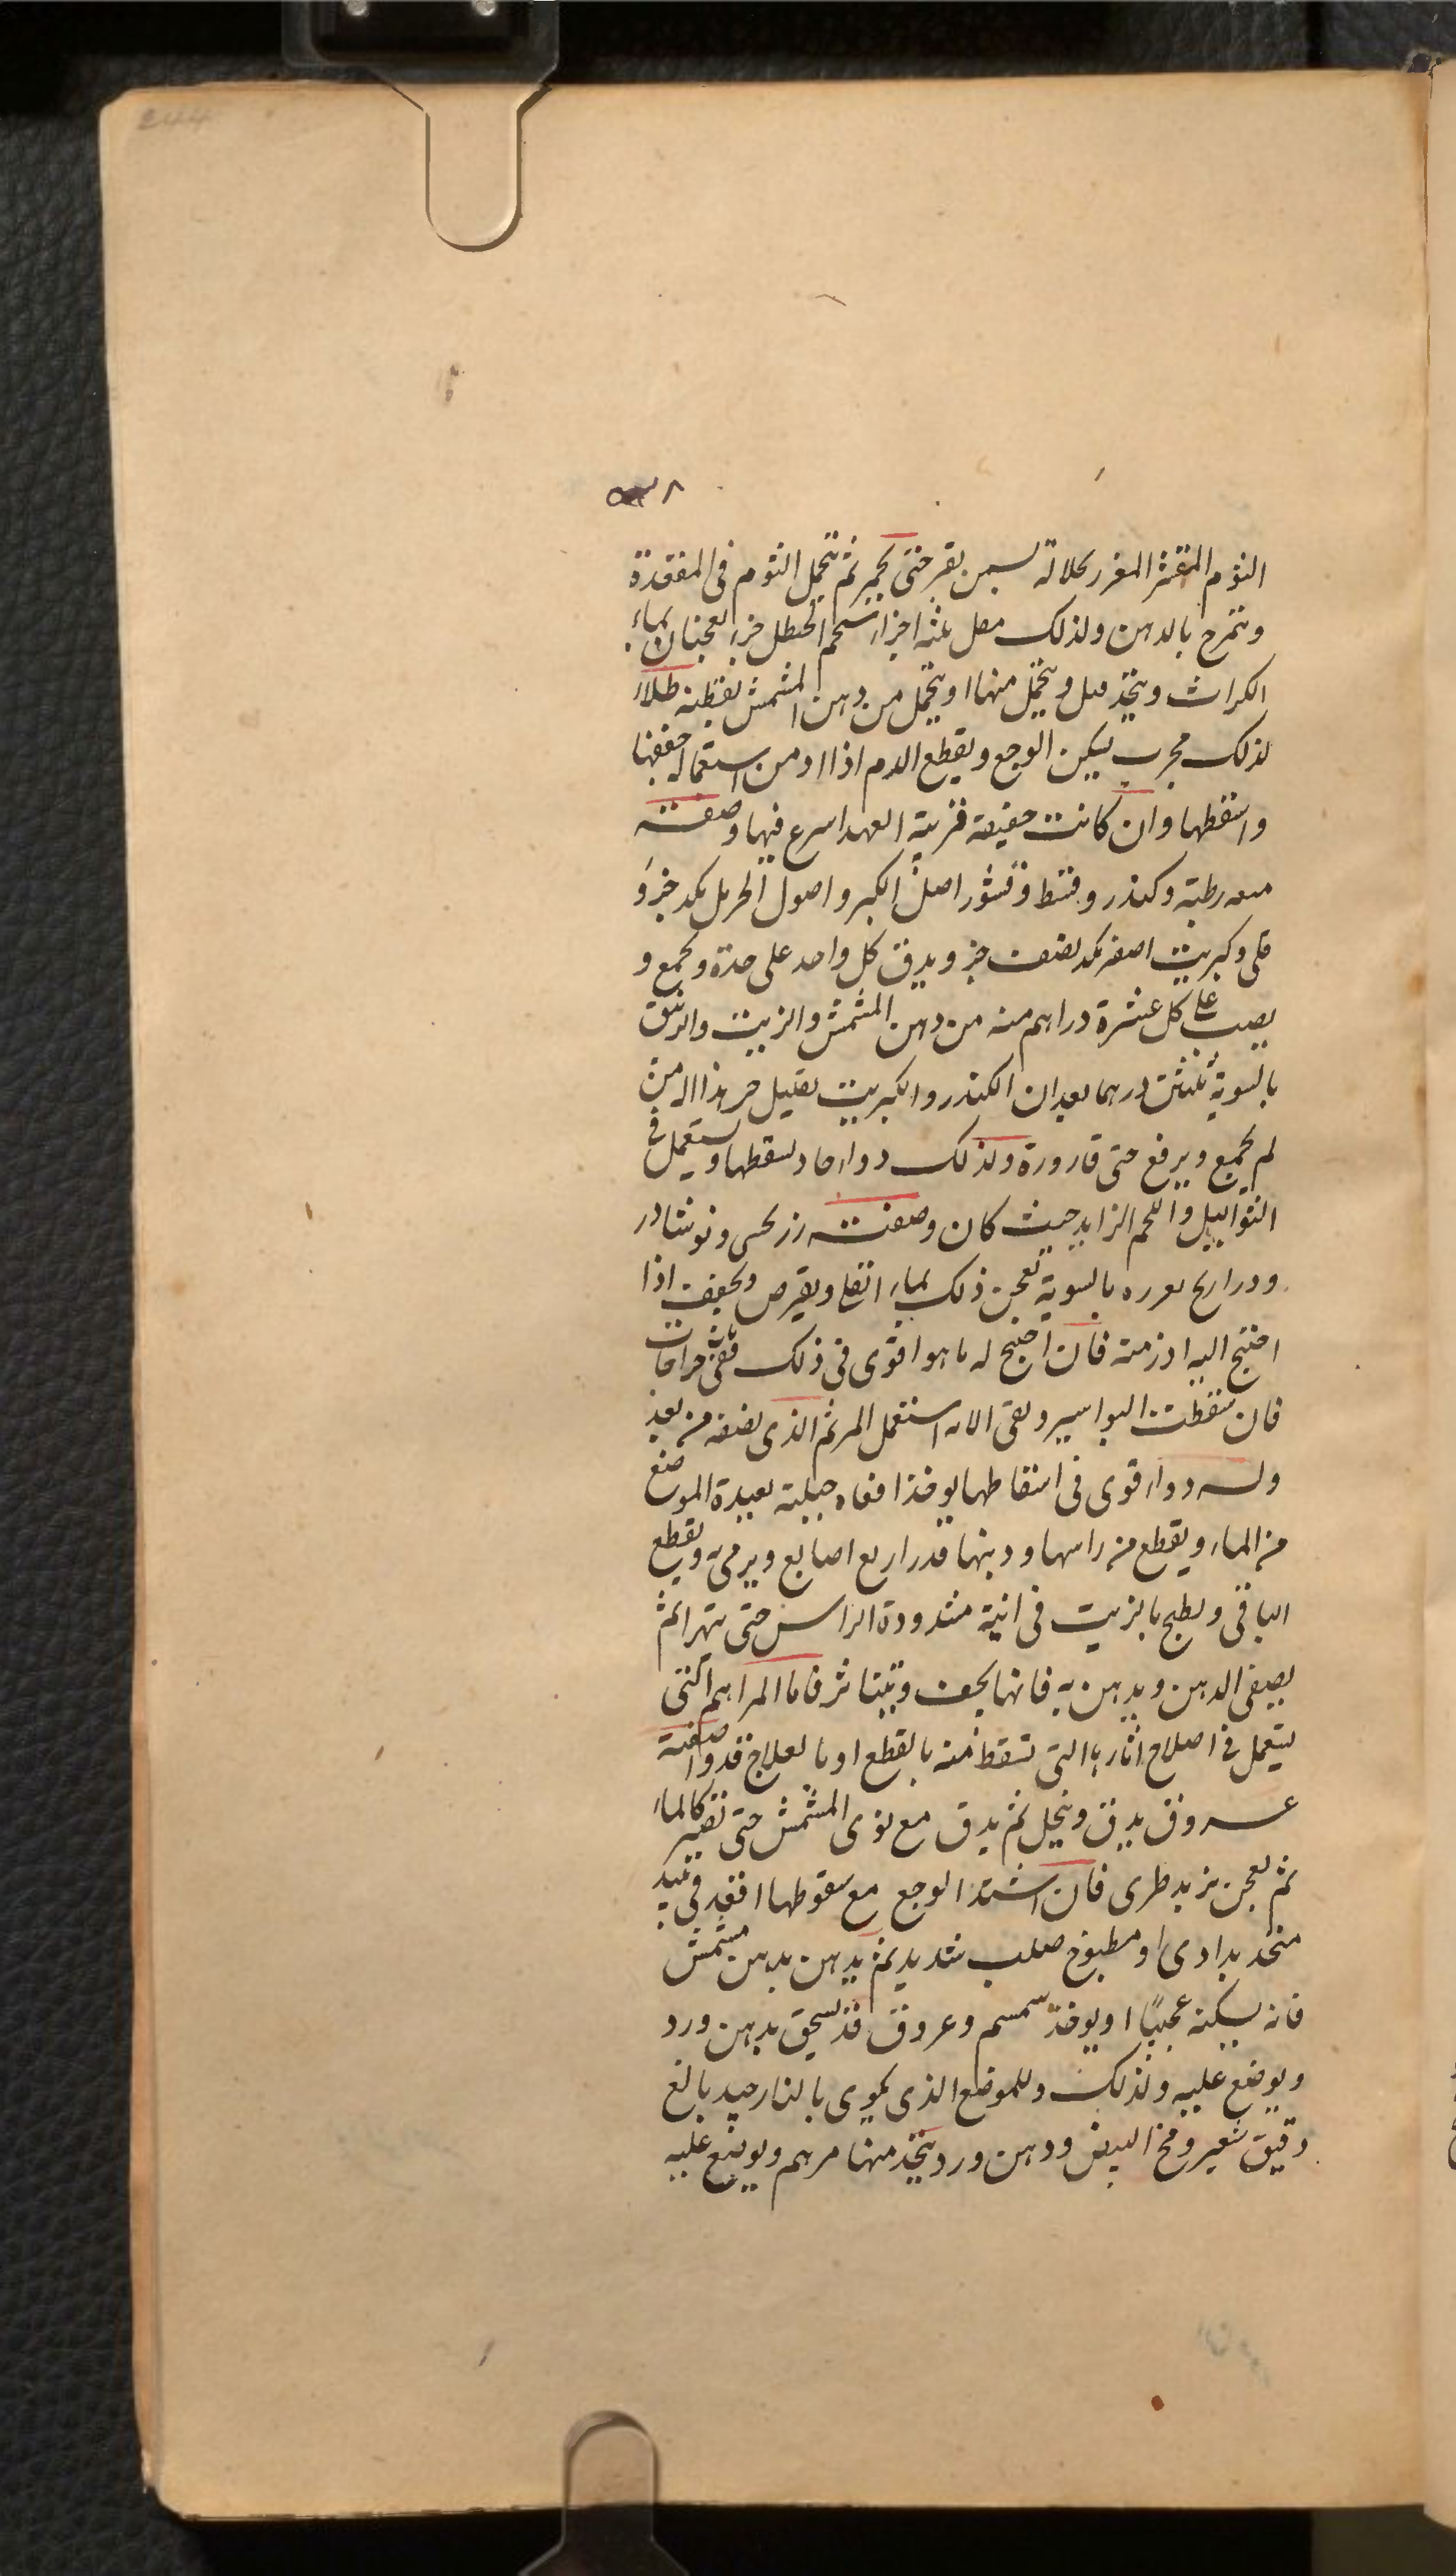 244
٨
الثوم المقشر المغر بسمن بقر حتى يحمر ثم يتحمل الثوم فى المقعدة
وتمرخ بالدهن ولذلك مقل ثلثة اجزاء شحم الحنظل جزء يعجنان بماء
الكراث ويتخذ ميل ويتحمل منها او يتحمل من دهن المشمش بقطنة طلاء
لذلك مجرب يسكن الوجع ويقطع الدم اذا ادمن استعماله جففها
واسقطها وان كانت خفيفة قريبة العهد اسرع فيها وصفته
ميعه رطبة وكندر وقسط وقشور اصل الكبر واصول الحرمل يكد جزؤ
قلى وكبريت اصفر يكد نصف جزو يدق كل واحد على حدة ويجمع و
يصب على كل عشرة دراهم منه من دهن المشمش والزيت والزئبق
بالسوية ثلثين درهما بعد ان الكندر والكبريت
لم يجمع ويرفع حتى قارورة ولذلك دواء حاد يسقطها ويستعمل فى
الثواليل واللحم الزايد حيث كان وصفته ونوشادر
وذراريح بالسوية تعجن ذلك بماء القلى ويقرص ويجفف اذا
احتيج اليه اذر منه فان احتيج له ما هو اقوى فى ذلك
فان سقطت البواسير وبقى الاثر استعمل المرهم الذى نصفه من بعد
وله دواء قوى فى اسقاطها يوخذ افعاء جبلية بعيدة الموضع
من الماء ويقطع من راسها وذنبها قدر اربع اصابع ويرمى به ويقطع
الباقى ويطبخ بالزيت فى انية مشدودة الراس حتى يتهرا ثم
يصفى الدهن ويدهن به فانها يجف وتتناثر فاما المراهم التى
يستعمل فى اصلاح اثارها التى تسقط منه بالقطع او بالعلاج
عروق يدق وينخل ثم يدق مع نوى المشمش حتى تصير كالماء
ثم يعجن بزبد طرى فان اشتد الوجع مع سقوطها اقعد فى نبيذ
او مطبوخ صلب شديد ثم يدهن بدهن مشمش
فانه يسكنه عجيبًا او يوخذ سمسم وعروق قد يسحق بدهن ورد
ويوضع عليه ولذلك وللموضع الذى يكوى بالنار جيد بالغ
دقيق شعير ومخ البيض ودهن ورد يتخذ منها مرهم ويوضع عليه